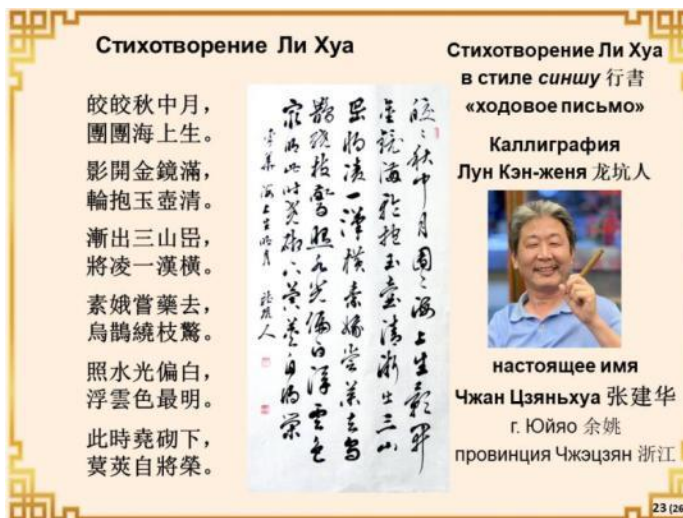 Стихотворение Ли Хуа
皎皎秋中月，
團團海上生。
影開金鏡滿，
輪抱玉壺清。
漸出三山岊，
將凌一漢橫。
素娥嘗藥去，
烏鵲繞枝驚。
照水光偏白，
浮雲色最明。
此時堯砌下，
蓂莢自將榮。
皎〻秋中月團〻海上生影開
金鏡滿輪抱玉壺清漸出三山
岊將凌一漢橫素娥嘗藥去烏
鵲繞枝驚照水光偏白浮雲色
最明此時堯砌下蓂莢自將榮
李華 海上生明月 龍坑人
Стихотворение Ли Хуа
в стиле синшу 行書
«ходовое письмо»
Каллиграфия
Лун Кэн-женя 龙坑人
настоящее имя
Чжан Цзяньхуа 张建华
г. Юйяо 余姚
провинция Чжэцзян 浙江
23 (26